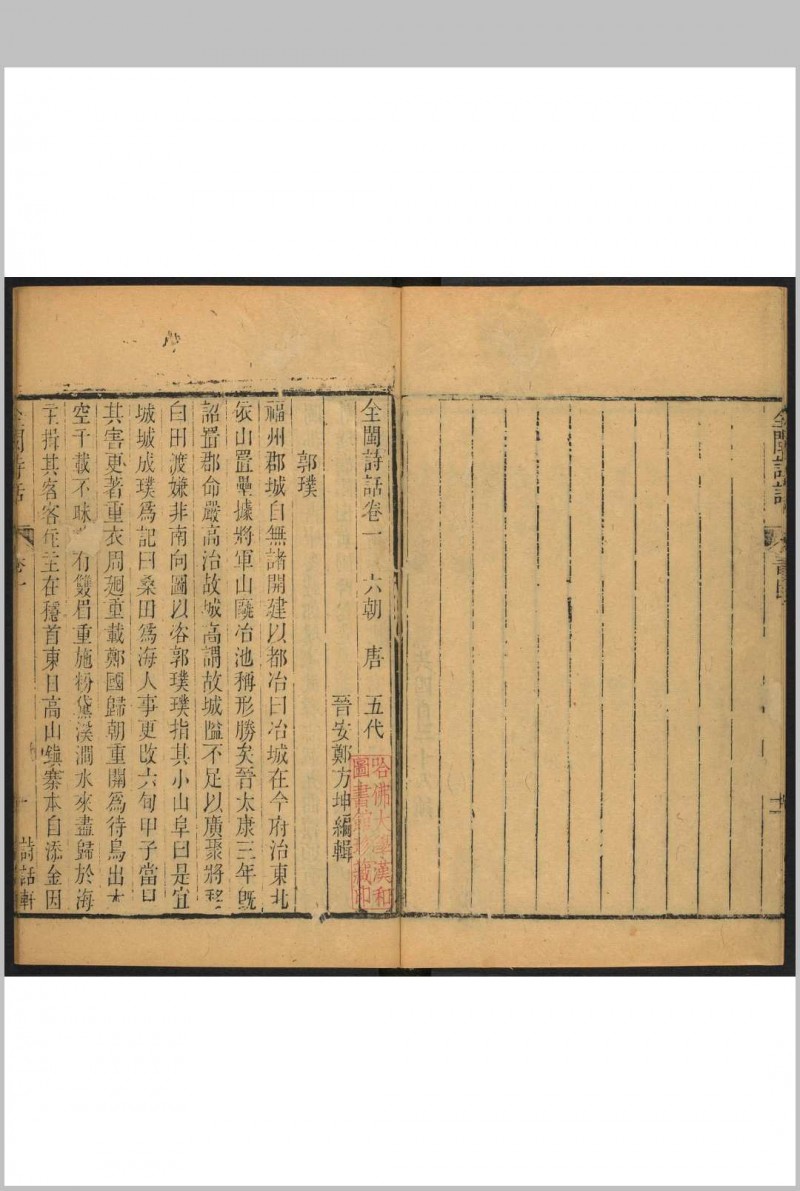 全閩詩話
全閩詩話卷一　六朝　唐　五代
晉安鄭方坤編輯
哈佛大學漢和
圖書館珍藏印
郭璞
福州郡城自無諸開建以都冶曰冶城在今府治東北
依山置壘據將軍山歐冶池稱形勝矣晉太康三年既
詔置郡命嚴高治故城高謂故城隘不足以廣聚將移
白田渡嫌非南向圖以咨郭璞璞指其小山阜曰是宜
城城成璞爲記曰桑田爲海人事更改六旬甲子當
其害更著重衣周廻重載鄭國歸朝重關爲待鳥出木
空千載不昧 有雙眉重施粉黛溪澗水來盡歸於海
主揖其客客住主在穩首東日高山鎮寨本自添金因
全閩詩話　卷一　一　詩話軒